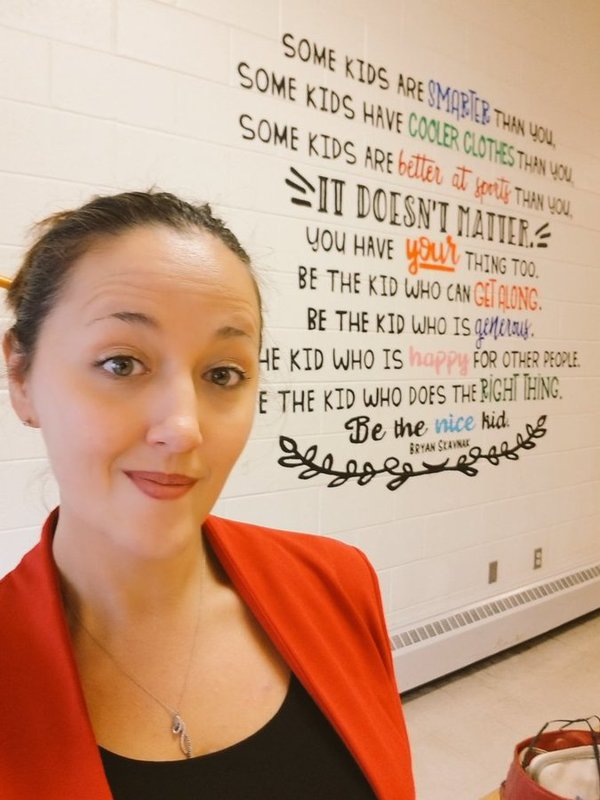 SOME KIDS ARE SMARTER THAN YOU,
SOME KIDS HAVE COOLER CLOTHES THAN YOU,
SOME KIDS ARE better at sports THAN YOU,
IT DOESN'T MATTER.
YOU HAVE your THING TOO.
BE THE KID WHO CAN GET ALONG.
BE THE KID WHO IS generous.
HE KID WHO IS happy FOR OTHER PEOPLE.
E THE KID WHO DOES THE RIGHT THING.
Be the nice kid.
BRYAN SKAVNAK